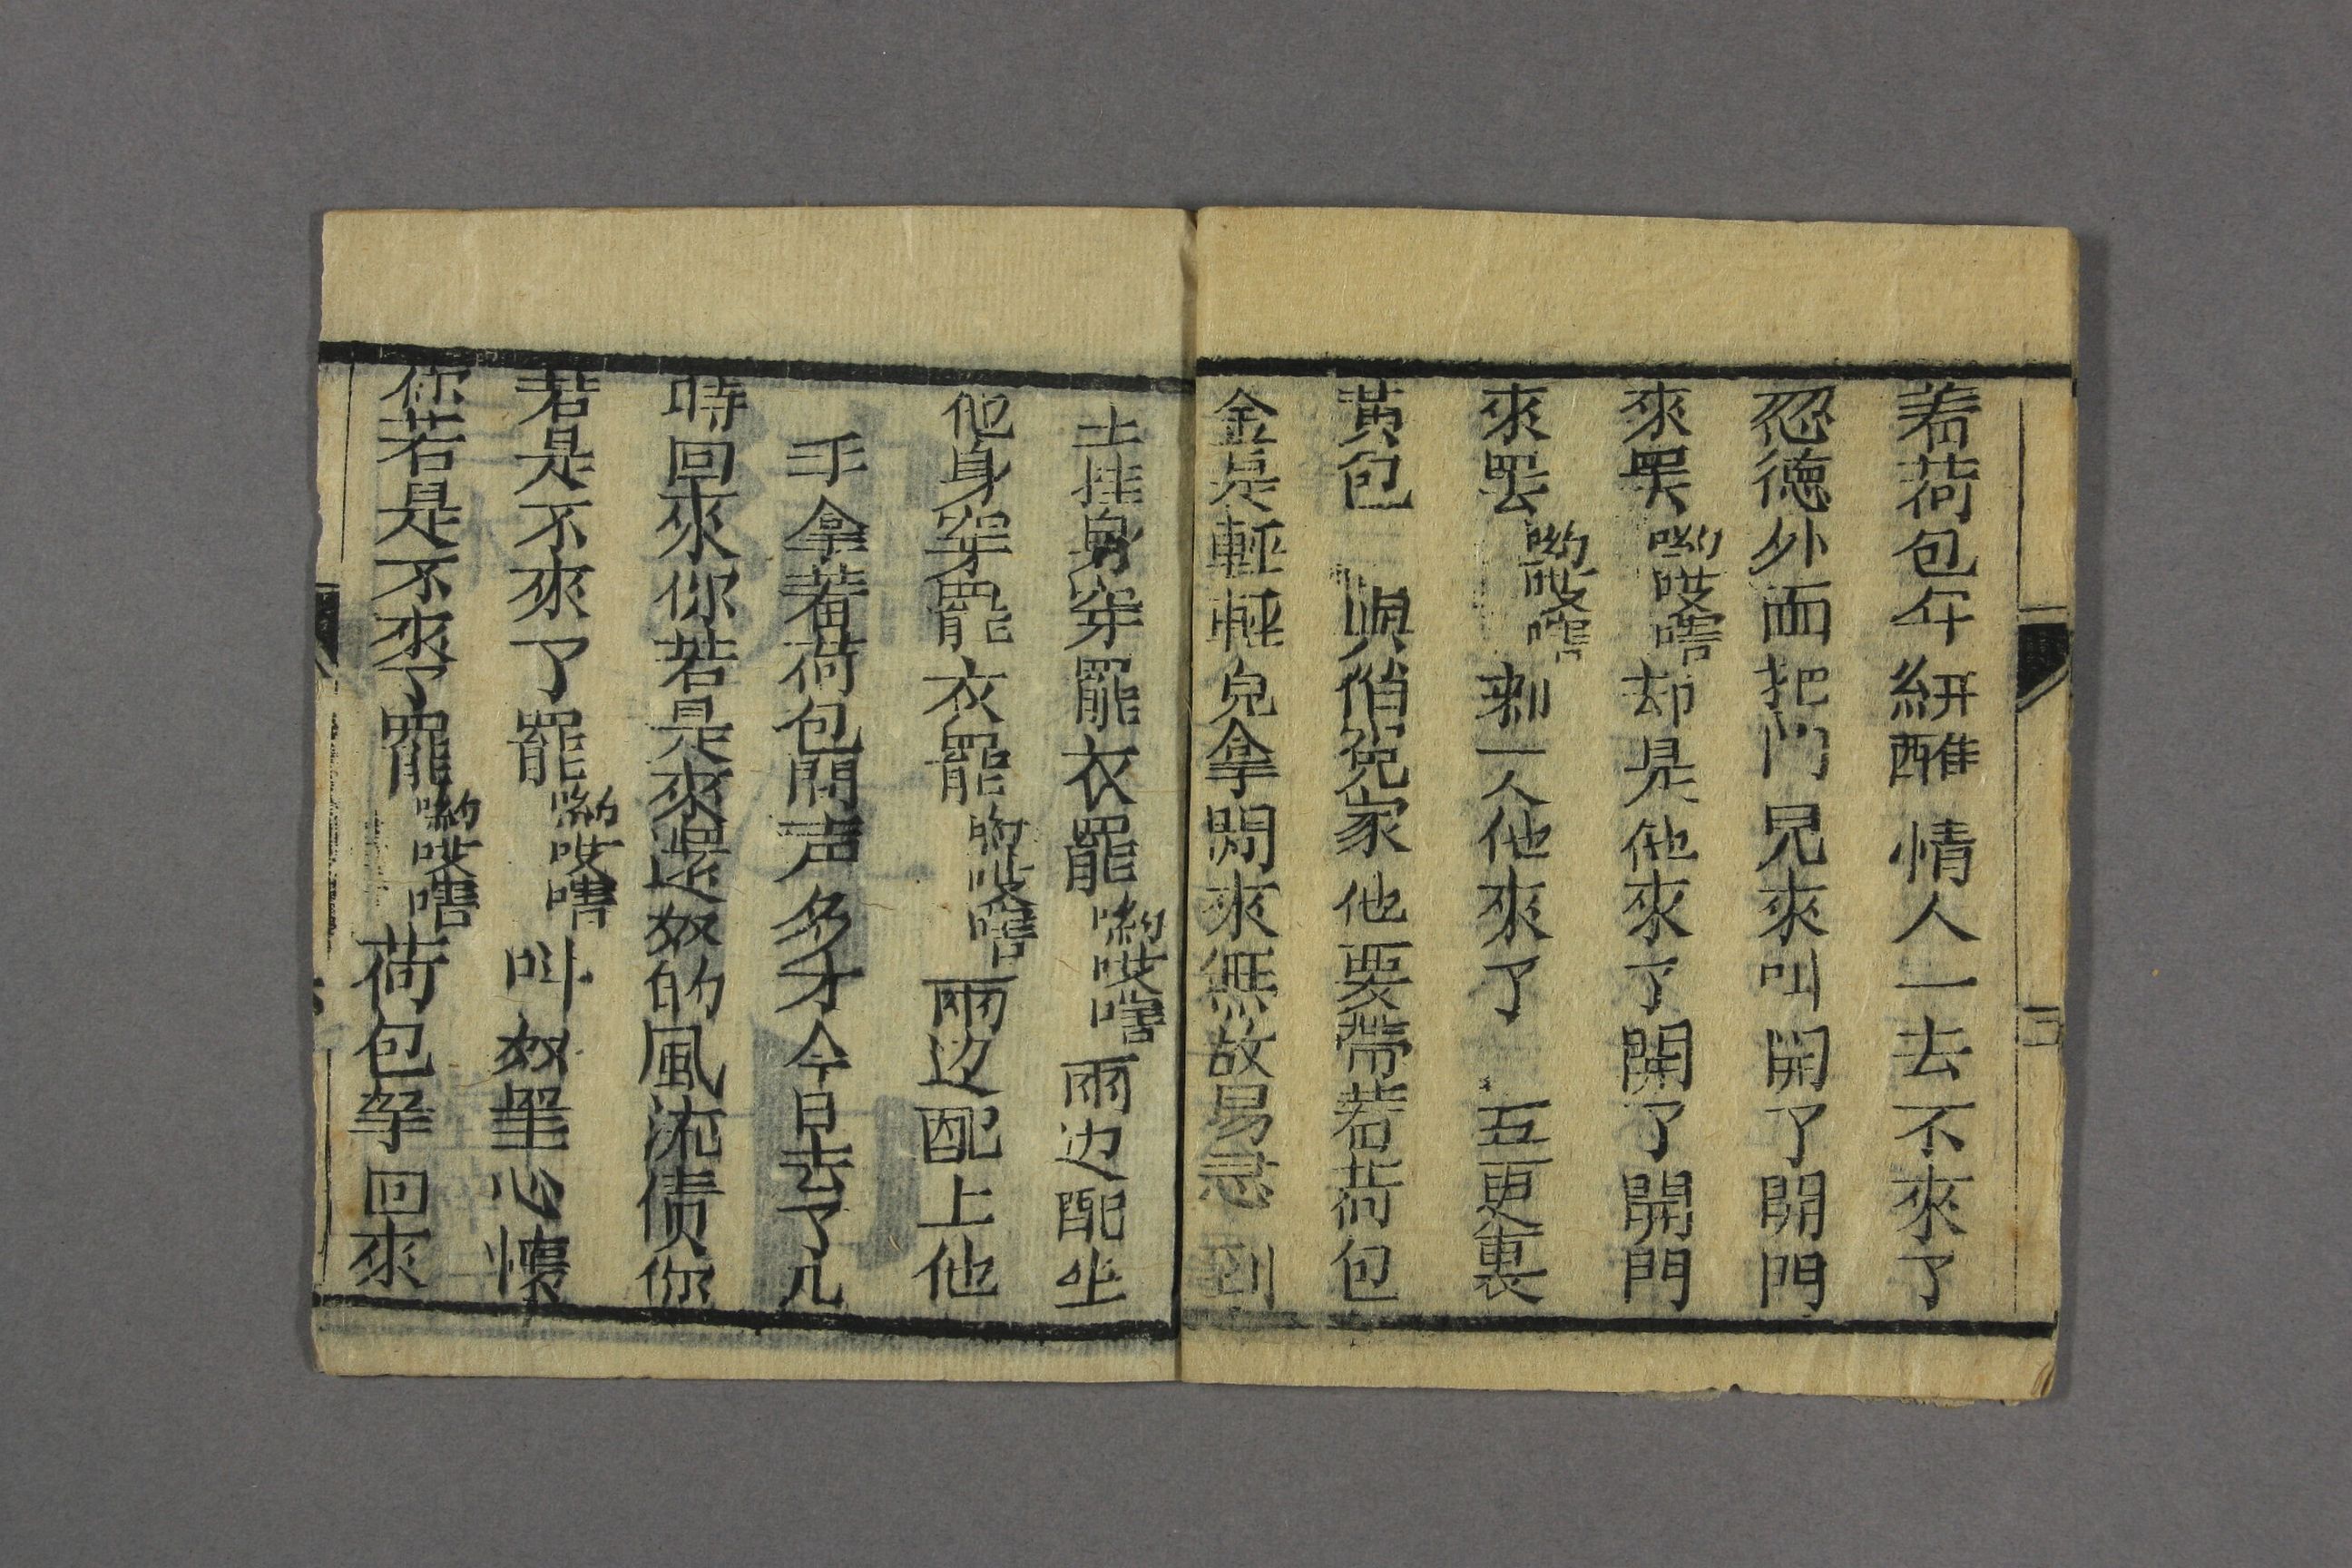 着荷包年紐醮情人一去不來了
忍德外面把门兄來叫開了開門
來罢哟哎喒却是他來了開了開門
來罢哟哎喒刺一人他來了 五更裏
黃包 俏冤家他要帶着荷包
金是輕輕兒拿開來無故易忌到
土挂身穿罷衣罷哟哎喒兩边配坐
他身穿罷衣罷哟哎喒兩边配上他
手拿着荷包問声多才今日去了几
時回來你若是來還奴的風流债你
若是不來了罷哟哎喒叫奴挂心懷
你若是不來了罷哟哎喒荷包拿回來
三